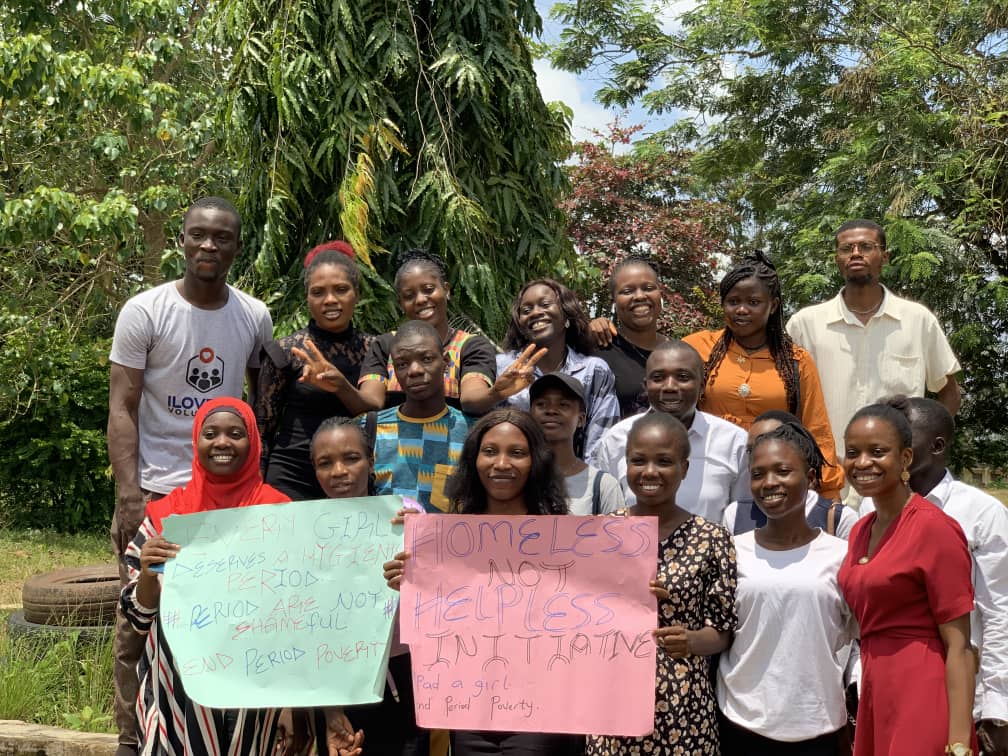 ILOVE
VOLU
EVERY GIRL
DESERVES A HYGIENI
PERIOD.
# PERIOD ARE NOT #
SHAMEFUL
END PERIOD POVERTY
HOMELESS
NOT
HELPLESS
INITIATIVE
Pad a girl
nd Period Poverty.